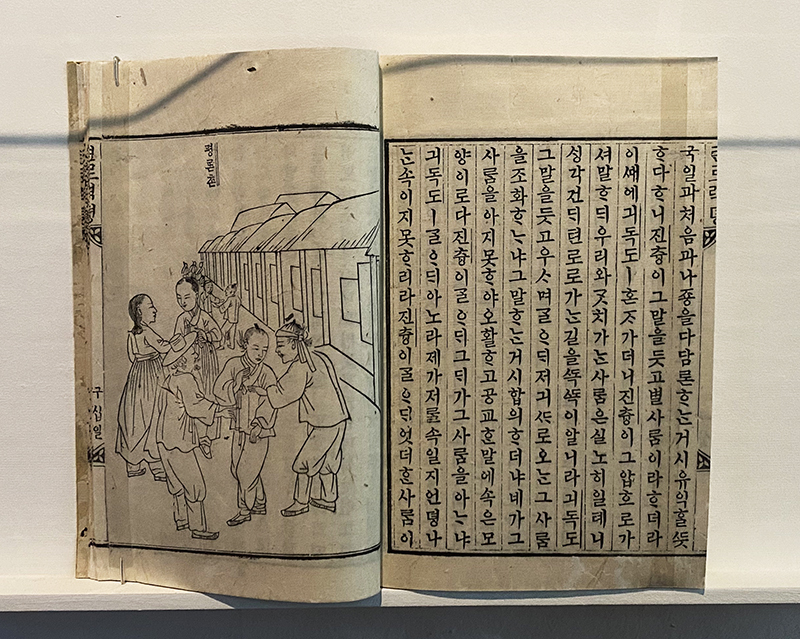 국일과처음과나죵을다담론ᄒᆞᄂᆞᆫ거시유익ᄒᆞᆯᄯᅳᆺ
ᄒᆞ다ᄒᆞ니진츙이그말을듯고별사ᄅᆞᆷ이라ᄒᆞ더라
이ᄯᅢ에긔독도ㅣ혼ᄌᆞ가더니진츙이그압흐로가
셔말ᄒᆞᄃᆡ우리와ᄀᆞᆺ치가ᄂᆞᆫ사ᄅᆞᆷ은실노히일테니
성각건ᄃᆡ텬로로가ᄂᆞᆫ길을ᄯᅩᆨᄯᅩᆨ이알니라긔독도
그말을듯고우ᄉᆞ며ᄀᆞᆯᄋᆞᄃᆡ저긔ᄯᅡ로오ᄂᆞᆫ그사ᄅᆞᆷ
을조화ᄒᆞᄂᆞ냐그말ᄒᆞᄂᆞᆫ거시합의ᄒᆞ더냐네가그
사ᄅᆞᆷ을아지못ᄒᆞ야오활ᄒᆞ고공교ᄒᆞᆫ말에속은모
양이로다진츙이ᄀᆞᆯᄋᆞᄃᆡ그ᄃᆡ가그사ᄅᆞᆷ을아ᄂᆞ냐
긔독도ㅣᄀᆞᆯᄋᆞᄃᆡ아노라제가저ᄅᆞᆯ속일지언뎡나
ᄂᆞᆫ속이지못ᄒᆞ리라진츙이ᄀᆞᆯᄋᆞᄃᆡ엇더ᄒᆞᆫ사ᄅᆞᆷ이
텬로력뎡
구십일